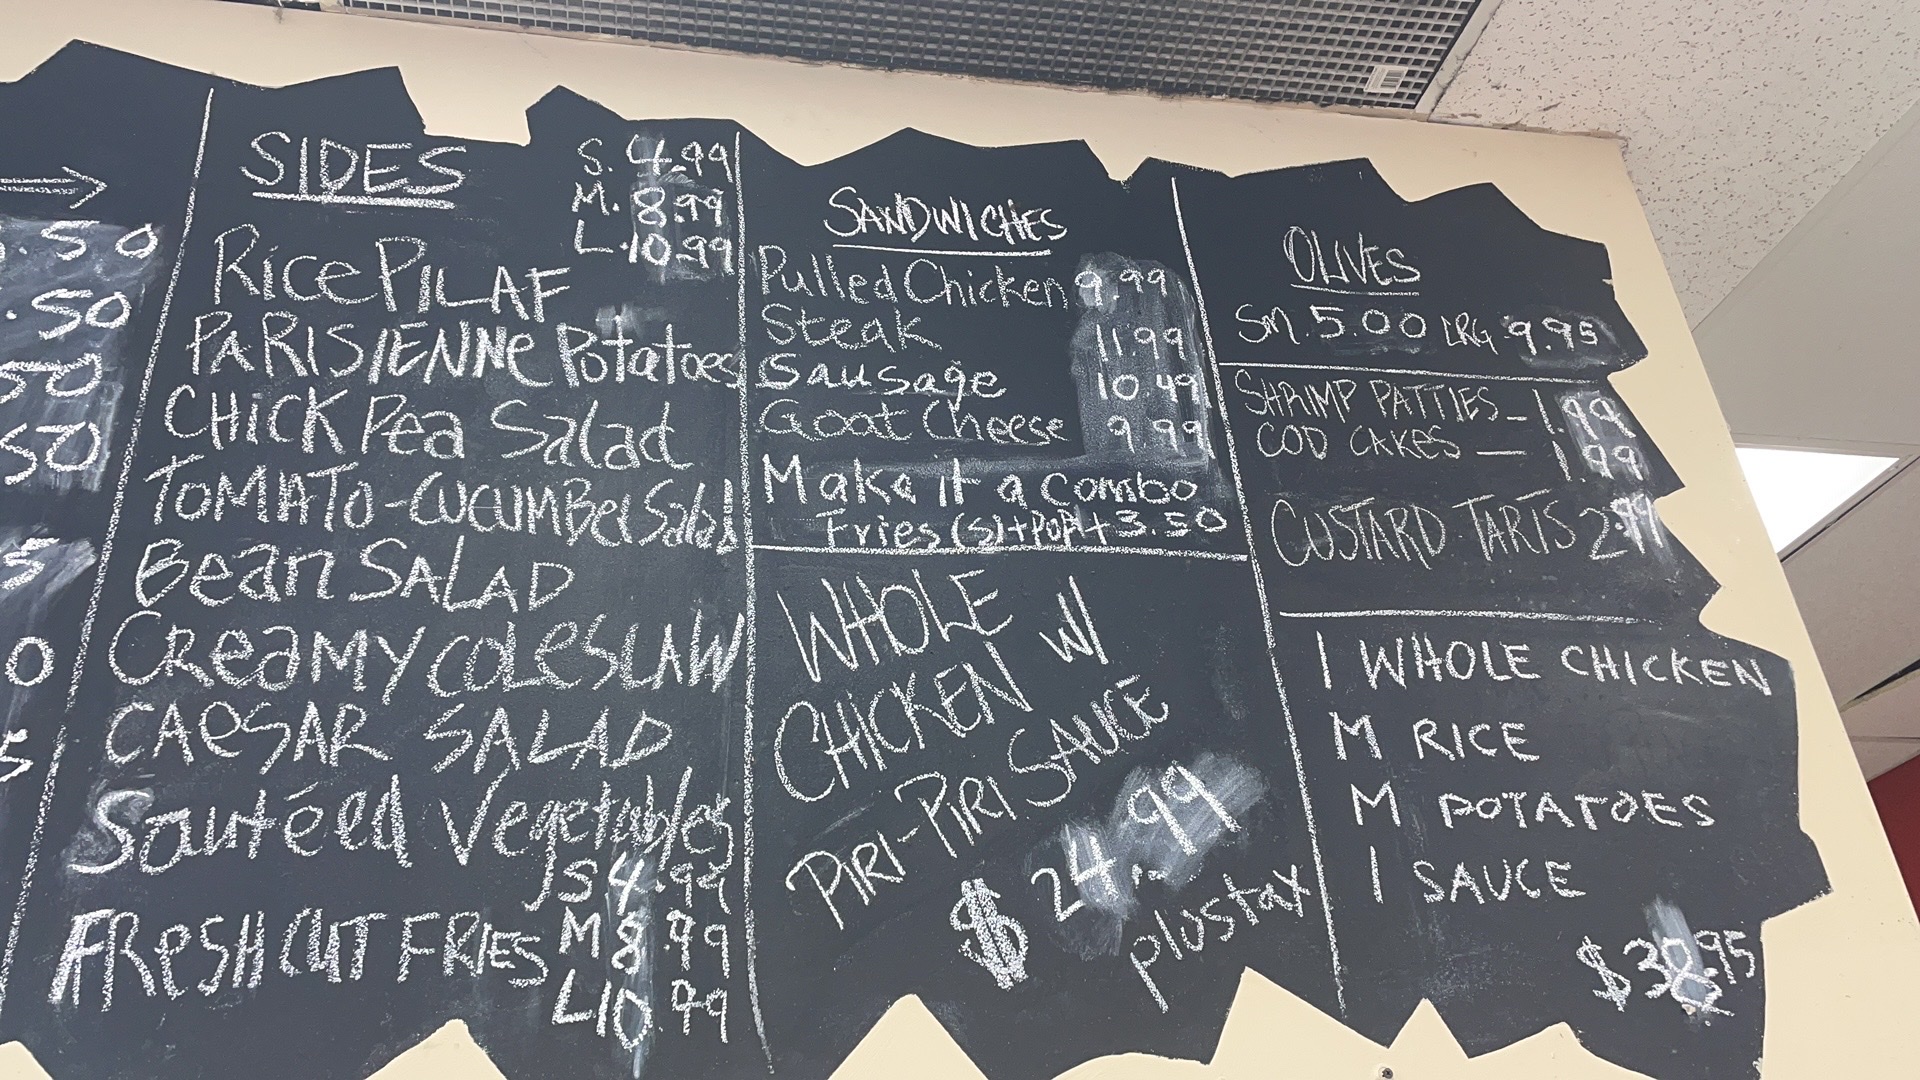 .50
.50
50
50
5
0
5
SIDES
S. 4.99
M. 8.99
L. 10.99
Rice PILAF
PARISIENNe Potatoes
CHICK Pea Salad
TOMATO-CUCUMBer Salad
Bean SALAD
CReaMY COLeSLAW
CAeSAR SALAD
Sautéed Vegetables
FResH CUT FRIES
S 4.99
M 8.99
L 10.99
SANDWICHES
Pulled Chicken 9.99
Steak 11.99
Sausage 10.49
Goat Cheese 9.99
Make it a Combo
Fries (s) + POP + 3.50
WHOLE
CHICKEN W/
PIRI-PIRI SAUCE
$ 24.99
plus tax
OLIVES
SM. 5.00 LRG. 9.95
SHRIMP PATTIES - 1.99
COD CAKES — 1.99
CUSTARD TARTS 2.99
1 WHOLE CHICKEN
M RICE
M POTATOES
1 SAUCE
$38.95